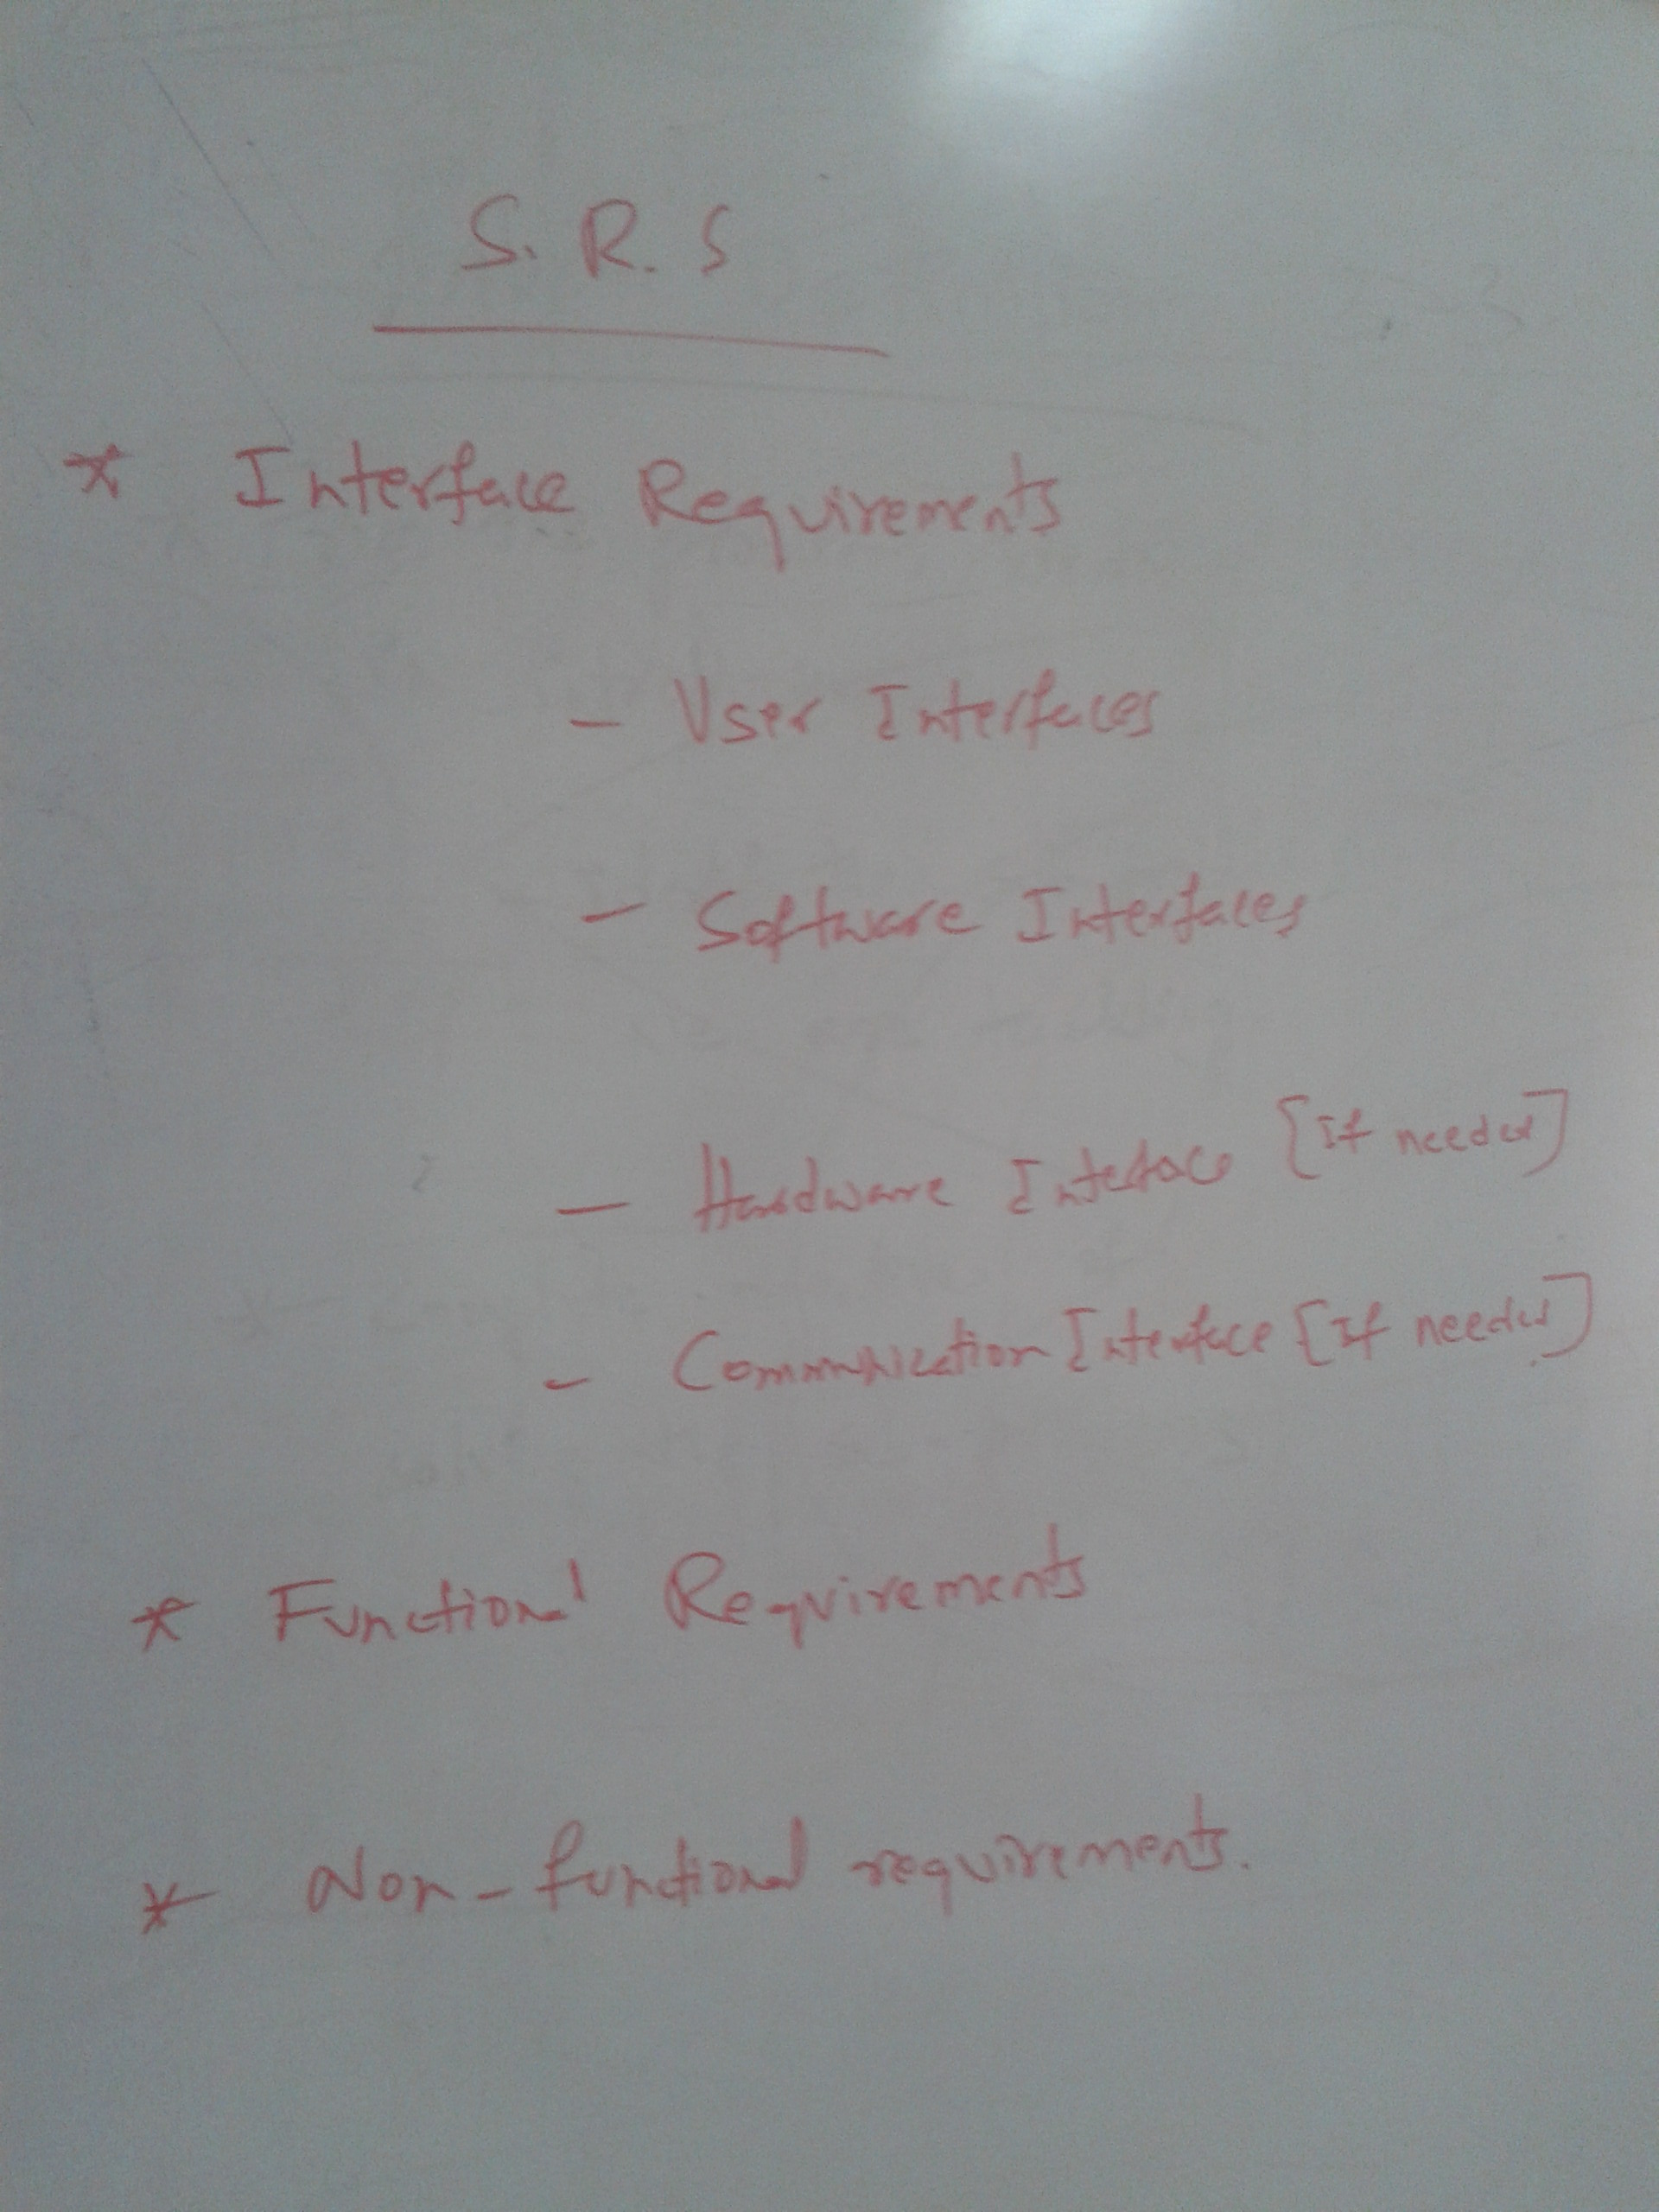 S. R. S
* Interface Requirements
- User Interfaces
- Software Interfaces
- Hardware Interface [If needed]
- Communication Interface [If needed]
* Functional Requirements
* Non-functional requirements.